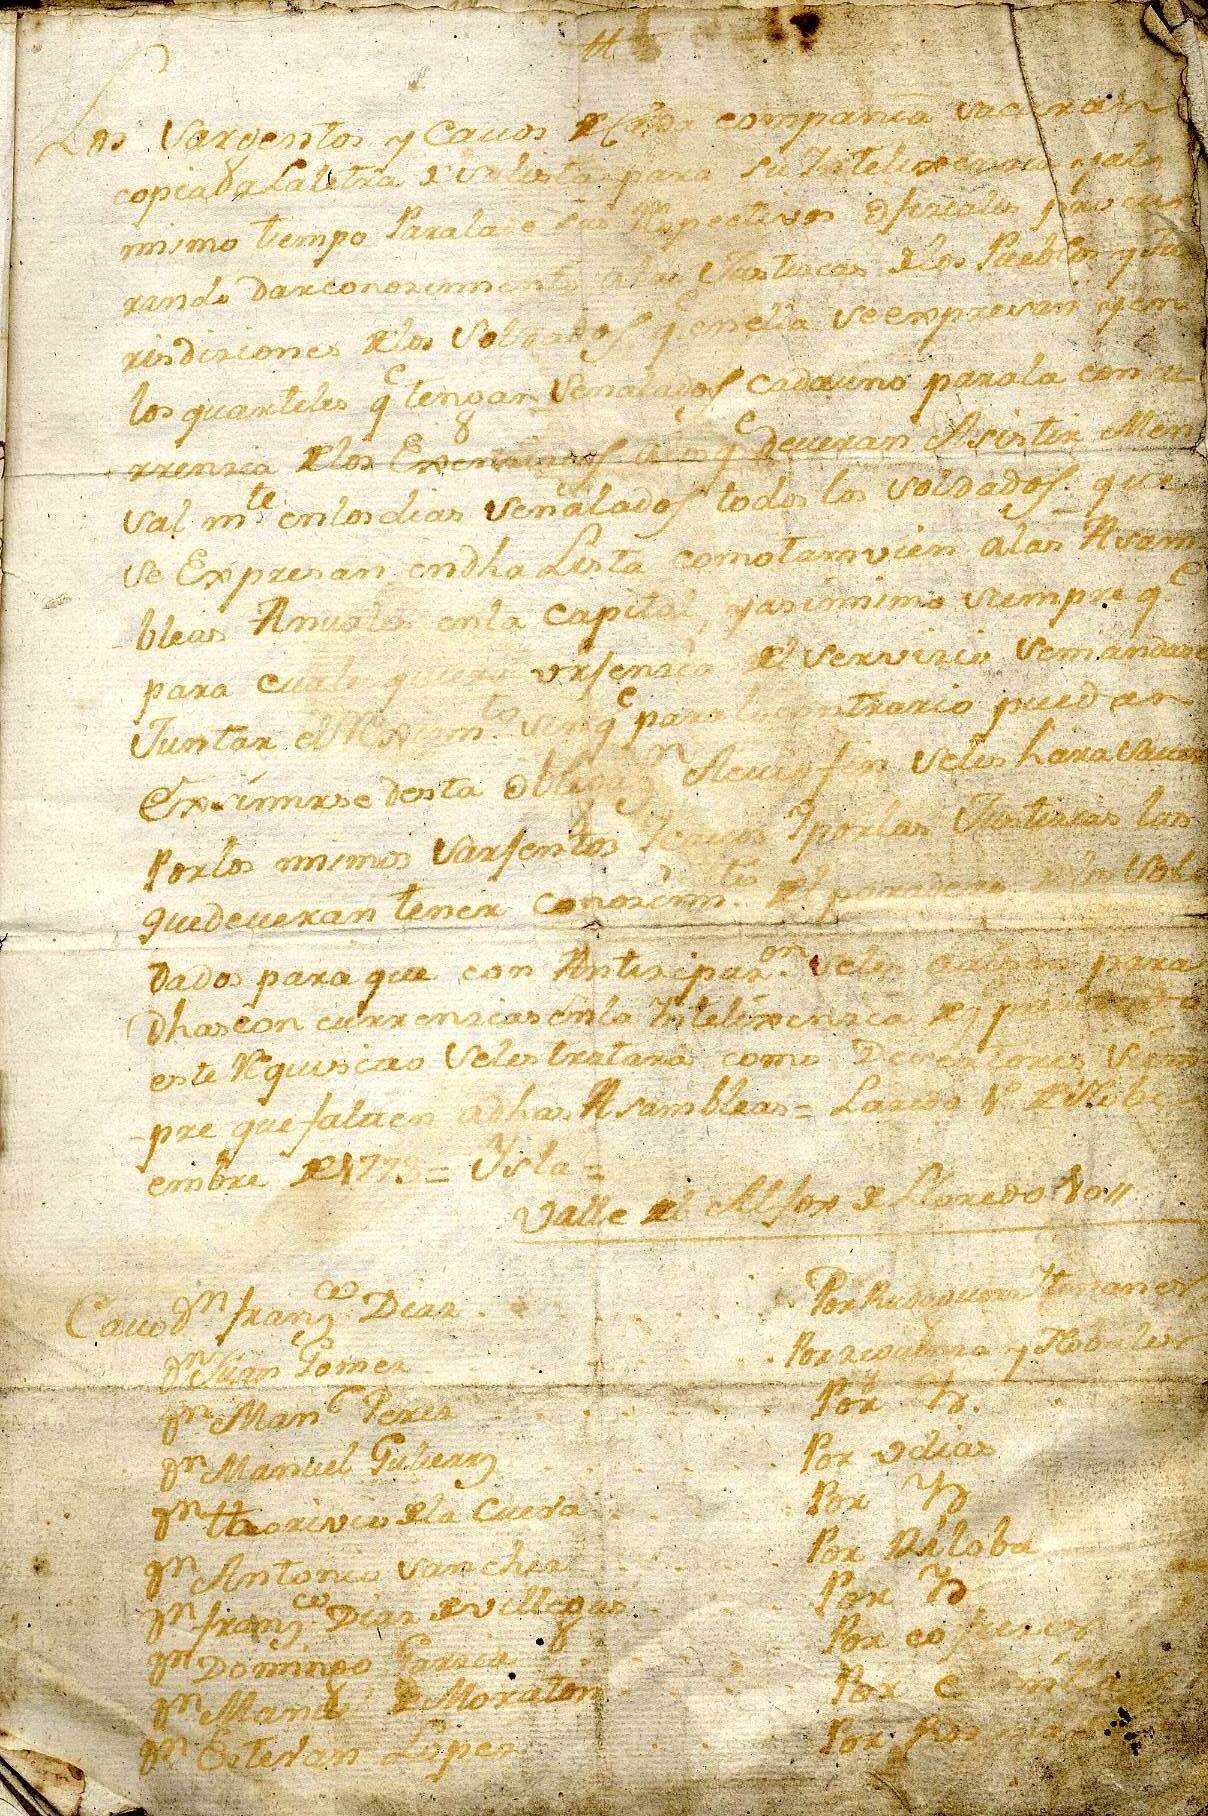 Los Sarxentos y Cavos de Cada compania sacaran
copia a la letra de esta lista para su Intelixencia y al
mismo tiempo Para la de sus Respectivos ofiziales procu
rando dar conozimiento a las Justicias de los Pueblos y Ju
risdiziones de los Soldados qe en ella se expresan y en
los quarteles qe tengan señalados cada uno para la concu
rrenzia de los Exercizios a los qe deveran Asistir Men
sal mte en los dias señalados todos los soldados que
se Expresan en dha Lista como tamvien a las Asam
bleas Anuales en la Capital, y asimismo siempre qe
para cualequiera urjenzia del servizio se mandare
Juntar el Rexim.to sin qe para lo contrario puedan
Eximirse desta obligazn A cuio fin se les hara saver
Por los mismos Sarjentos y cavos y por las Justizias las
que deveran tener conozim.to del paradero de los Sol
dados para que con Antizipaz.on se les avise para
dhas concurrenzias en la Intelixenzia de q
este Requisito se les tratara como Desertores siem
pre que falten a dhas Asambleas = Laredo 1º de Nobi
embre de 1773 = Ysla =
Valle del Alfox de Lloredo 80//
Cavo Dn franco Diaz . . . . . Por Rudaguera
Dn Juan Gomez . . . . Por y Nobales
Dn Manl Perez . . . . . Por Yd.
Dn Manuel Gutierrz . . . . . Por Udias
Dn Thorivio de la Cueva . . . . Por Yd
Dn Antonio Sanchez . . . . Por
Dn franco Diaz de Villegas . . . . Por Yd
Dn Domingo Garzia . . . . Por
Dn Manl de Moraton . . . . Por
Dn Estevan Lopez . . . . Por